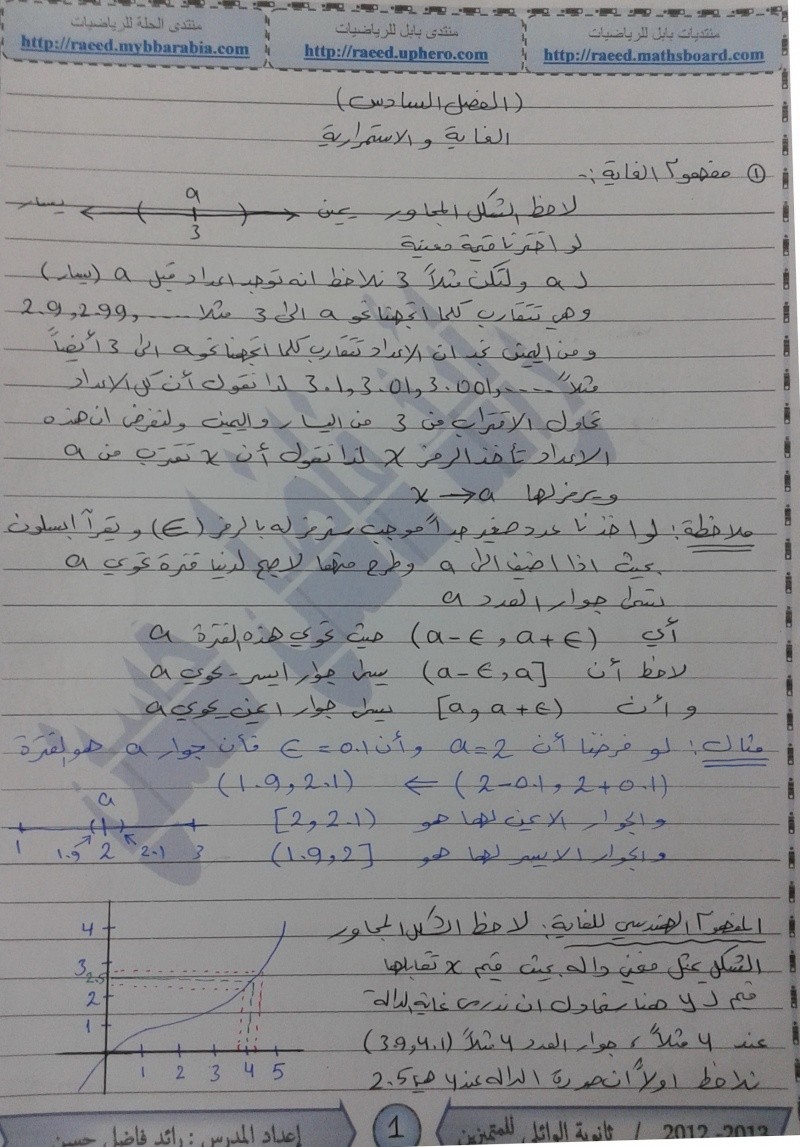 منتديات بابل للرياضيات
http://raeed.mathsboard.com
منتدى بابل للرياضيات
http://raeed.uphero.com
منتدى الحلة للرياضيات
http://raeed.mybbarabia.com
(الفصل السادس)
الغاية والاستمرارية
① مفهوم الغاية :-
لاحظ الشكل المجاور يمين a 3 يسار
لو اخترنا قيمة معينة
لـ a ولتكن مثلاً 3 نلاحظ انه توجد اعداد قبل a (يسار)
وهي تتقارب كلما اتجهنا نحو a الى 3 مثلا 2.9, 2.99, .....
ومن اليمين نجد ان الاعداد تتقارب كلما اتجهنا نحو a الى 3 أيضاً
مثلاً 3.1, 3.01, 3.001, ..... لذا نقول أن كل الاعداد
تحاول الاقتراب من 3 من اليسار واليمين ولنفرض ان هذه
الاعداد تأخذ الرمز x لذا نقول أن x تقترب من a
ويرمز لها x → a
ملاحظة : لو اخذنا عدد صغير جداً موجب سنرمز له بالرمز (ϵ) ويقرأ ابسلون
بحيث اذا اضيف الى a وطرح منها لاصبح لدينا فترة تحوي a
تسمى جوار العدد a
أي (a-ϵ, a+ϵ) حيث تحوي هذه الفترة a
لاحظ أن (a-ϵ, a] يسمى جوار ايسر يحوي a
وأن [a, a+ϵ) يسمى جوار ايمن يحوي a
مثال : لو فرضنا أن a=2 وأن ϵ=0.1 فأن جوار a هو الفترة
(2-0.1, 2+0.1) ⇐ (1.9, 2.1)
والجوار الايمن لها هو [2, 2.1)
والجوار الايسر لها هو (1.9, 2]
a
1 1.9 2 2.1 3
المفهوم الهندسي للغاية : لاحظ الشكل المجاور
الشكل يمثل منحني دالة بحيث قيم x تقابلها
قيم لـ y هنا سنحاول ان ندرس غاية الدالة
عند 4 مثلاً، جوار العدد 4 مثلاً (3.9, 4.1)
نلاحظ اولاً ان صورة الدالة عند 4 هي 2.5
4
3
2.5
2
1
1 2 3 4 5
2012-2013 / ثانوية الوائلي للمتميزين
1
إعداد المدرس : رائد فاضل حسين